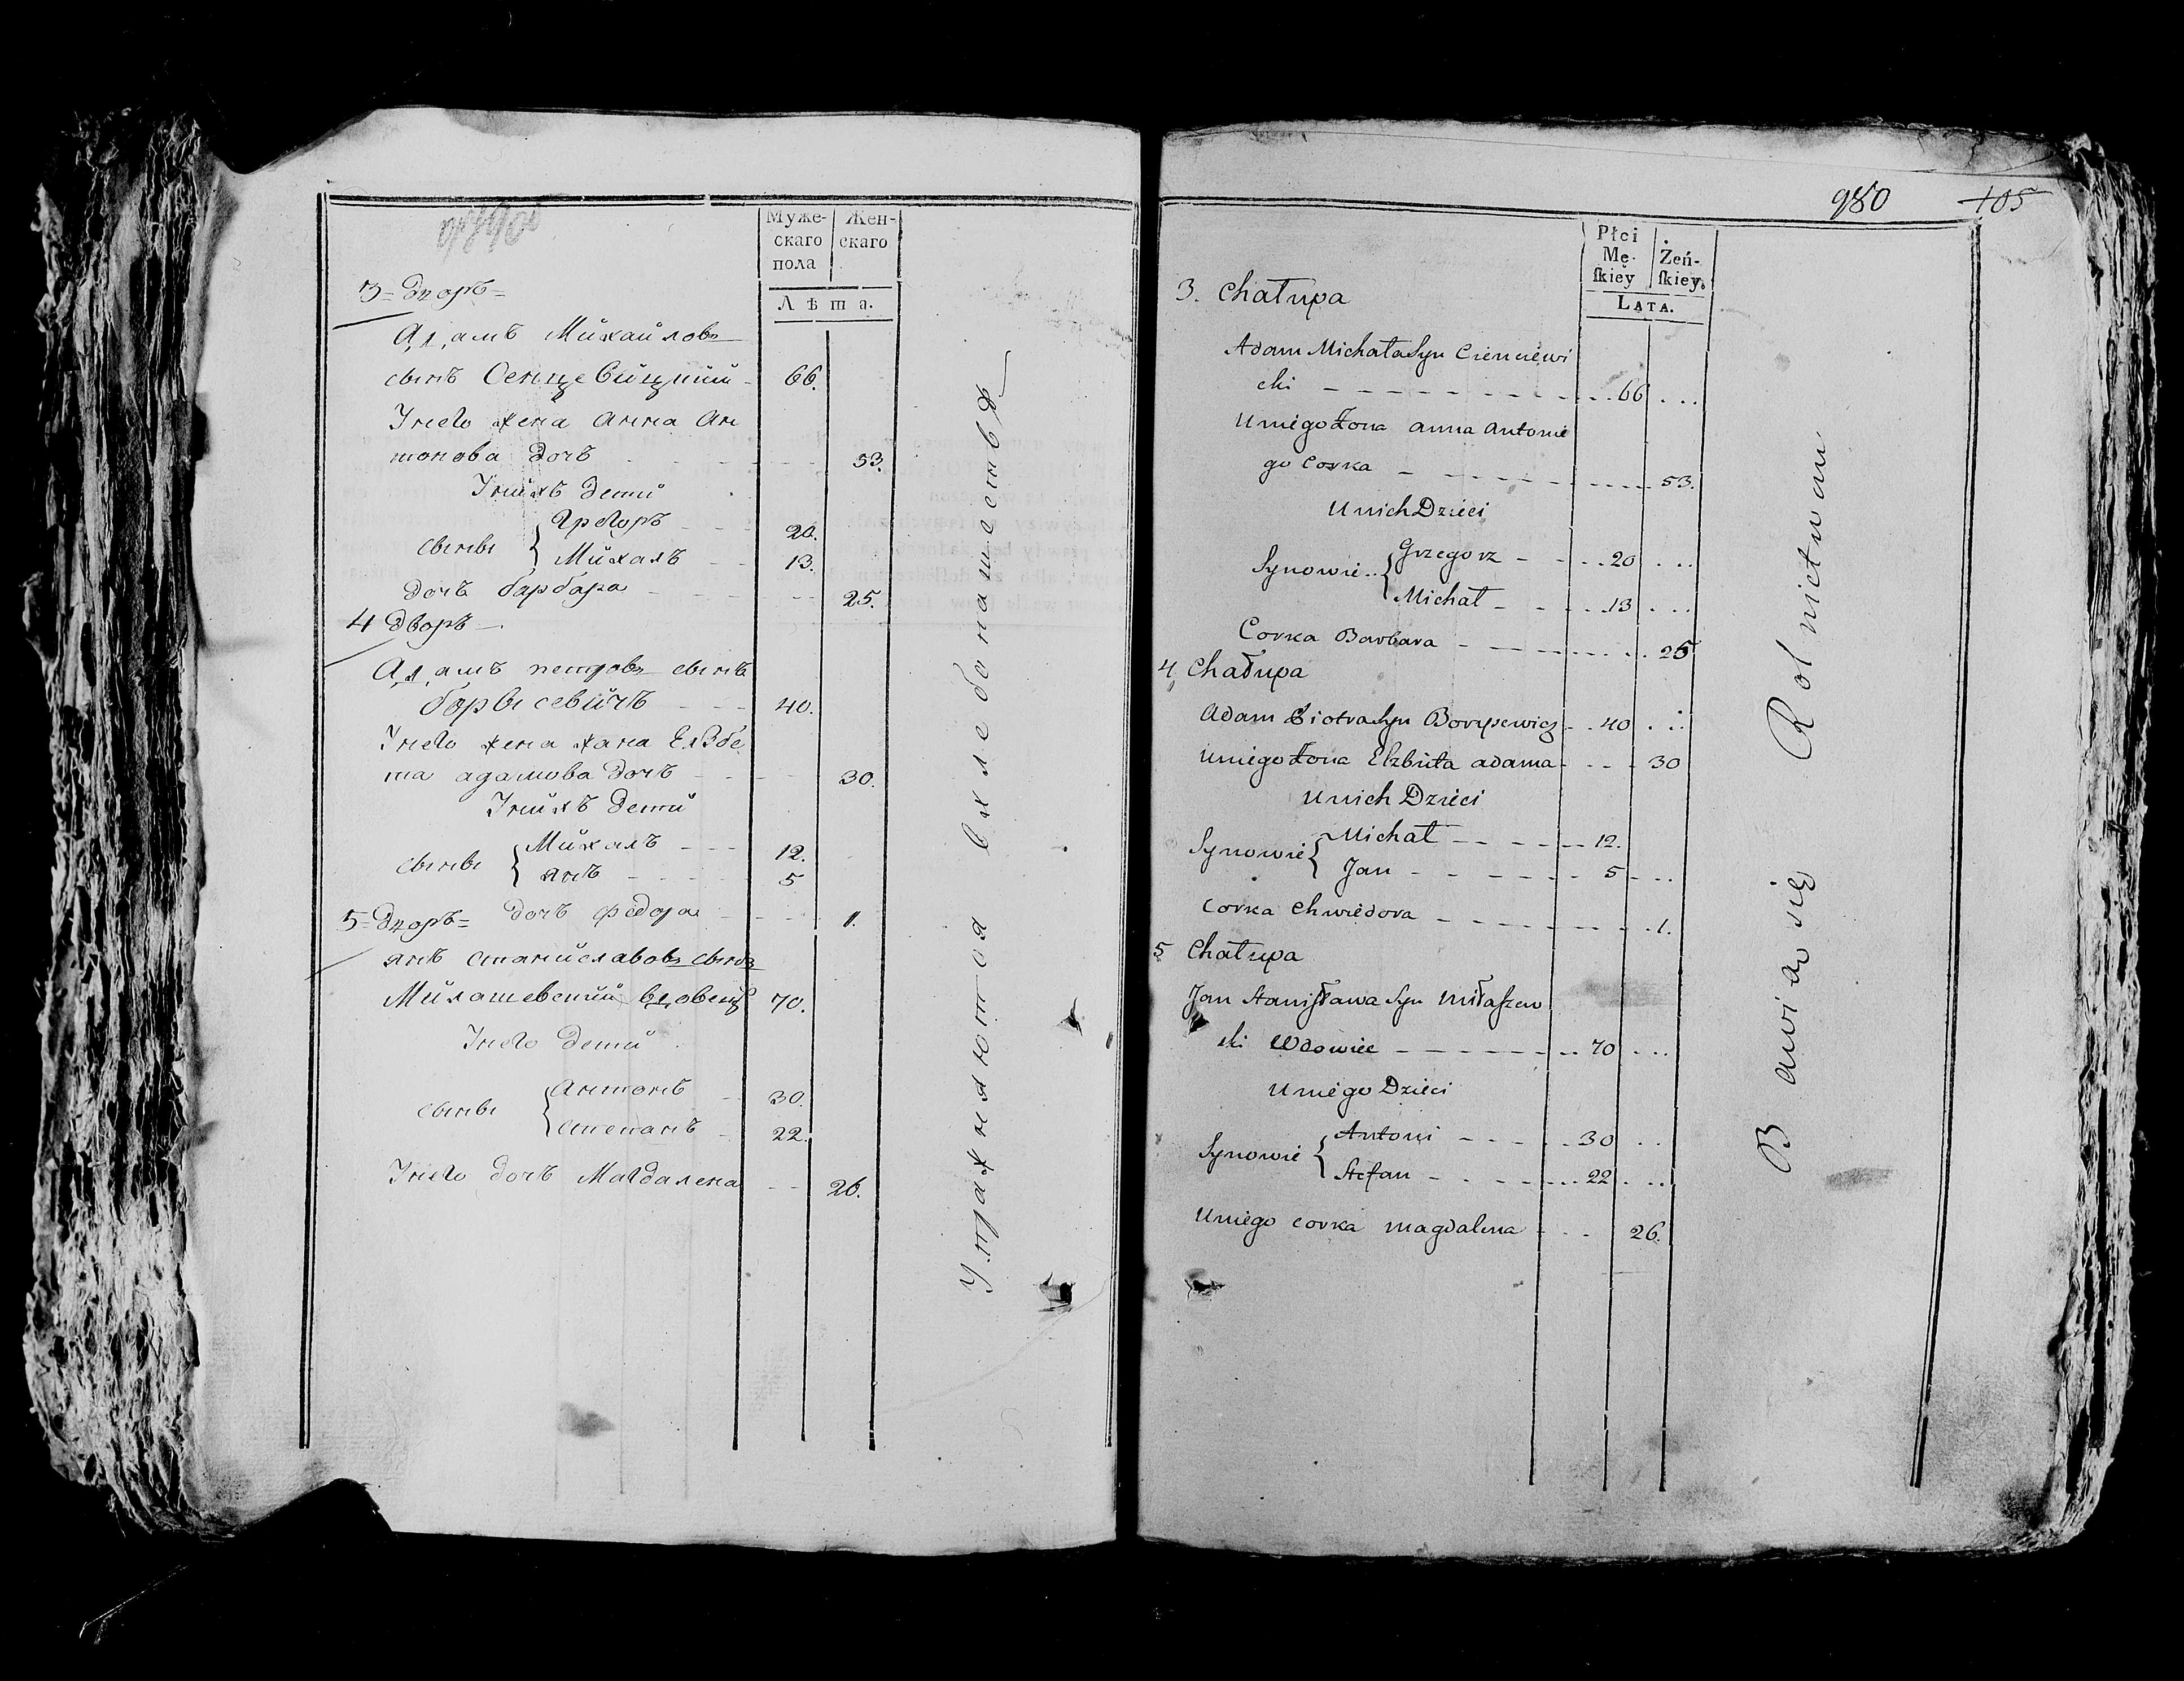 Муже-
скаго
пола
Жен-
скаго
Лѣта.
3 = Дворъ =
Адамъ Михайловъ
сынъ Сенцевицкий 66.
Унего жена Анна Ан
тонова дочъ 53.
Унихъ дети
сыны { Грегоръ 20.
Михалъ 13.
дочъ барбара 25.
4 Дворъ
Адамъ петровъ сынъ
борысевичъ 40.
Унего жена жана Елзбе
та адамова дочъ 30.
Унихъ дети
сыны { Михалъ 12.
янъ 5
дочъ федора 1.
5 = Дворъ =
янъ станиславовъ сынъ
Милашевский вдовецъ 70.
Унего дети
сыны { Антонъ 30.
степанъ 22.
Унего дочъ Магдалена 26.
Упражняются вхлебопашестве
980 105
Płci
Mę-
ſkiey
Żeń-
ſkiey.
LATA.
3. Chałupa
Adam Michała Syn Cienciewi
cki 66
Uniego Żona anna antonie
go Corka 53.
Unich Dzieci
Synowie { Grzegorz 20
Michał 13
Corka Barbara 25
4 Chałupa
Adam Piotra Syn Borysewicz 40
Uniego Żona Elzbieta adama 30
Unich Dzieci
Synowie { Michał 12.
Jan 5
Corka Chwiedora 1.
5 Chałupa
Jan Stanisława Syn Miłaszew
ski Wdowiec 70
Uniego Dzieci
Synowie { Antoni 30
Stefan 22
Uniego Corka Magdalena 26.
Bawią się Rolnictwem